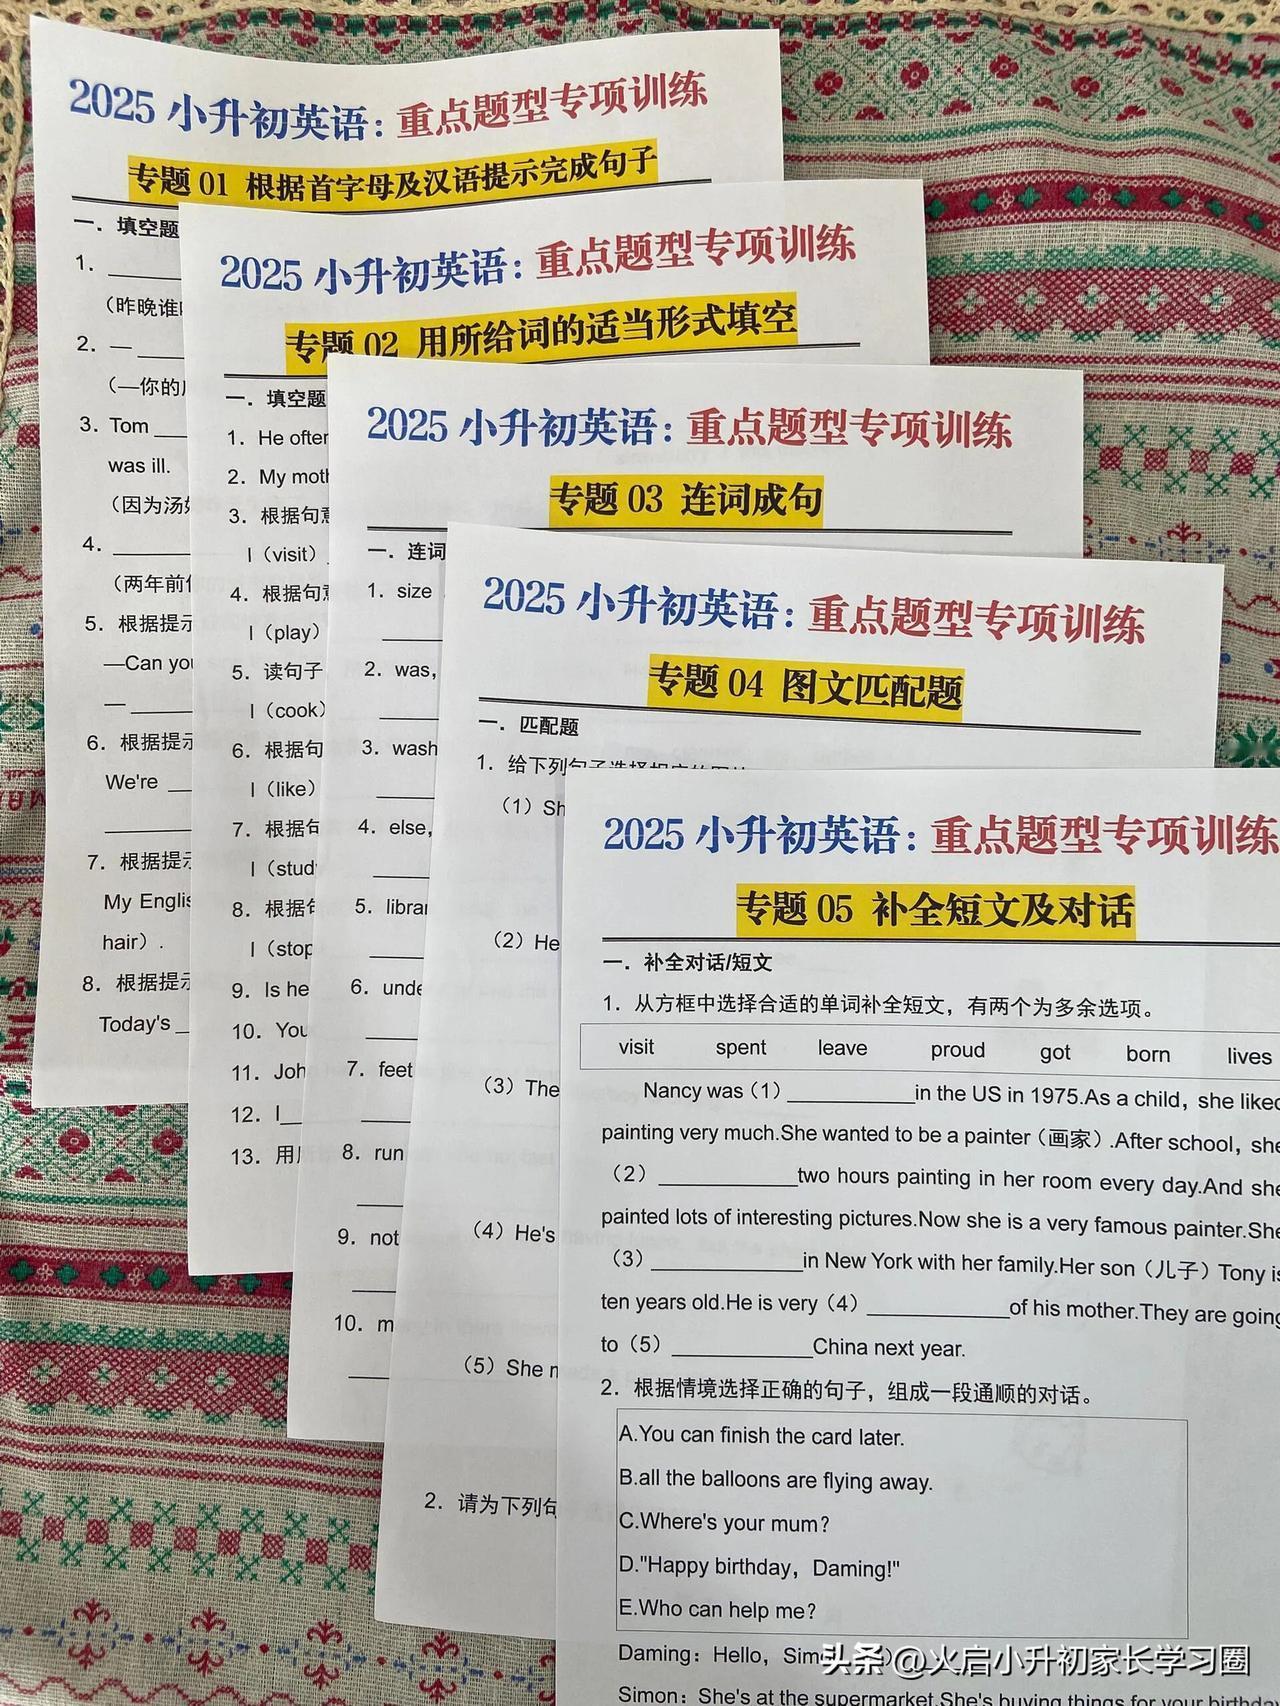 2025 小升初英语：重点题型专项训练
专题 01 根据首字母及汉语提示完成句子
一．填空题
1．
（昨晚谁
2．—
（—你的
3．Tom
was ill.
（因为汤
4．
（两年前
5．根据提示
—Can you
—
6．根据提示
We're
7．根据提示
My Englis
hair）.
8．根据提示
Today's
2025 小升初英语：重点题型专项训练
专题 02 用所给词的适当形式填空
一．填空题
1．He often
2．My moth
3．根据句意
I（visit）
4．根据句意
I（play）
5．读句子
I（cook）
6．根据句
I（like）
7．根据句
I（stud
8．根据句
I（stop
9．Is he
10．You
11．Joh
12．I
13．用
2025 小升初英语：重点题型专项训练
专题 03 连词成句
一．连词
1．size
2．was,
3．wash
4．else,
5．librar
6．unde
7．feet
8．run
9．not
10．m
2025 小升初英语：重点题型专项训练
专题 04 图文匹配题
一．匹配题
1．给下列句子选择相应的图片
（1）Sh
（2）He
（3）The
（4）He's
（5）She
2．请为下列句
2025 小升初英语：重点题型专项训练
专题 05 补全短文及对话
一．补全对话/短文
1．从方框中选择合适的单词补全短文，有两个为多余选项。
visit spent leave proud got born lives
Nancy was（1）___________in the US in 1975.As a child，she liked
painting very much.She wanted to be a painter（画家）.After school，she
（2）____________two hours painting in her room every day.And she
painted lots of interesting pictures.Now she is a very famous painter.She
（3）_____________in New York with her family.Her son（儿子）Tony is
ten years old.He is very（4）____________of his mother.They are going
to（5）____________China next year.
2．根据情境选择正确的句子，组成一段通顺的对话。
A.You can finish the card later.
B.all the balloons are flying away.
C.Where's your mum?
D."Happy birthday，Daming!"
E.Who can help me?
Daming：Hello，Simo
Simon：She's at the supermarket.She's buying things for your birthday
头条 @火启小升初家长学习圈